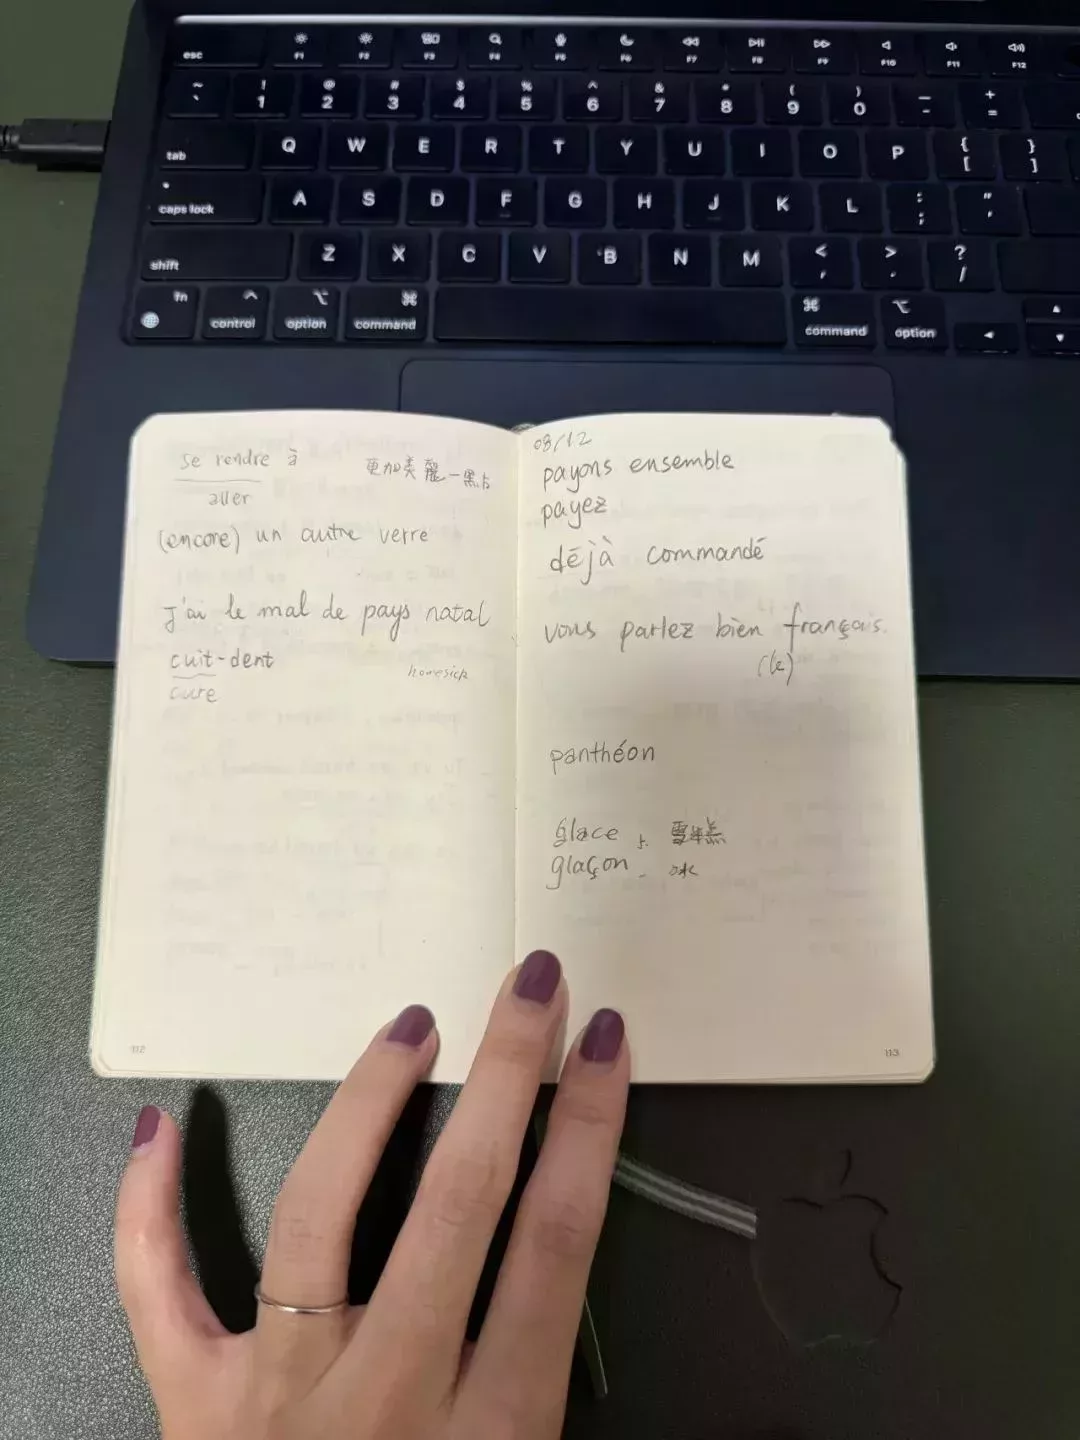 esc F1 F2 F3 F4 F5 F6 F7 F8 F9 F10 F11 F12
~ ` ! 1 @ 2 # 3 $ 4 % 5 ^ 6 & 7 * 8 ( 9 ) 0 _ - + =
tab Q W E R T Y U I O P { [ } ]
caps lock A S D F G H J K L : ; " '
shift Z X C V B N M < , > . ? /
fn control option command command option
se rendre à
更加美麗一點
aller
(encore) un autre verre
J'ai le mal de pays natal
cuit-dent
homesick
cure
112
08/12
payons ensemble
payez
déjà commandé
vous parlez bien français.
(le)
panthéon
glace 雪糕
glaçon 冰
113